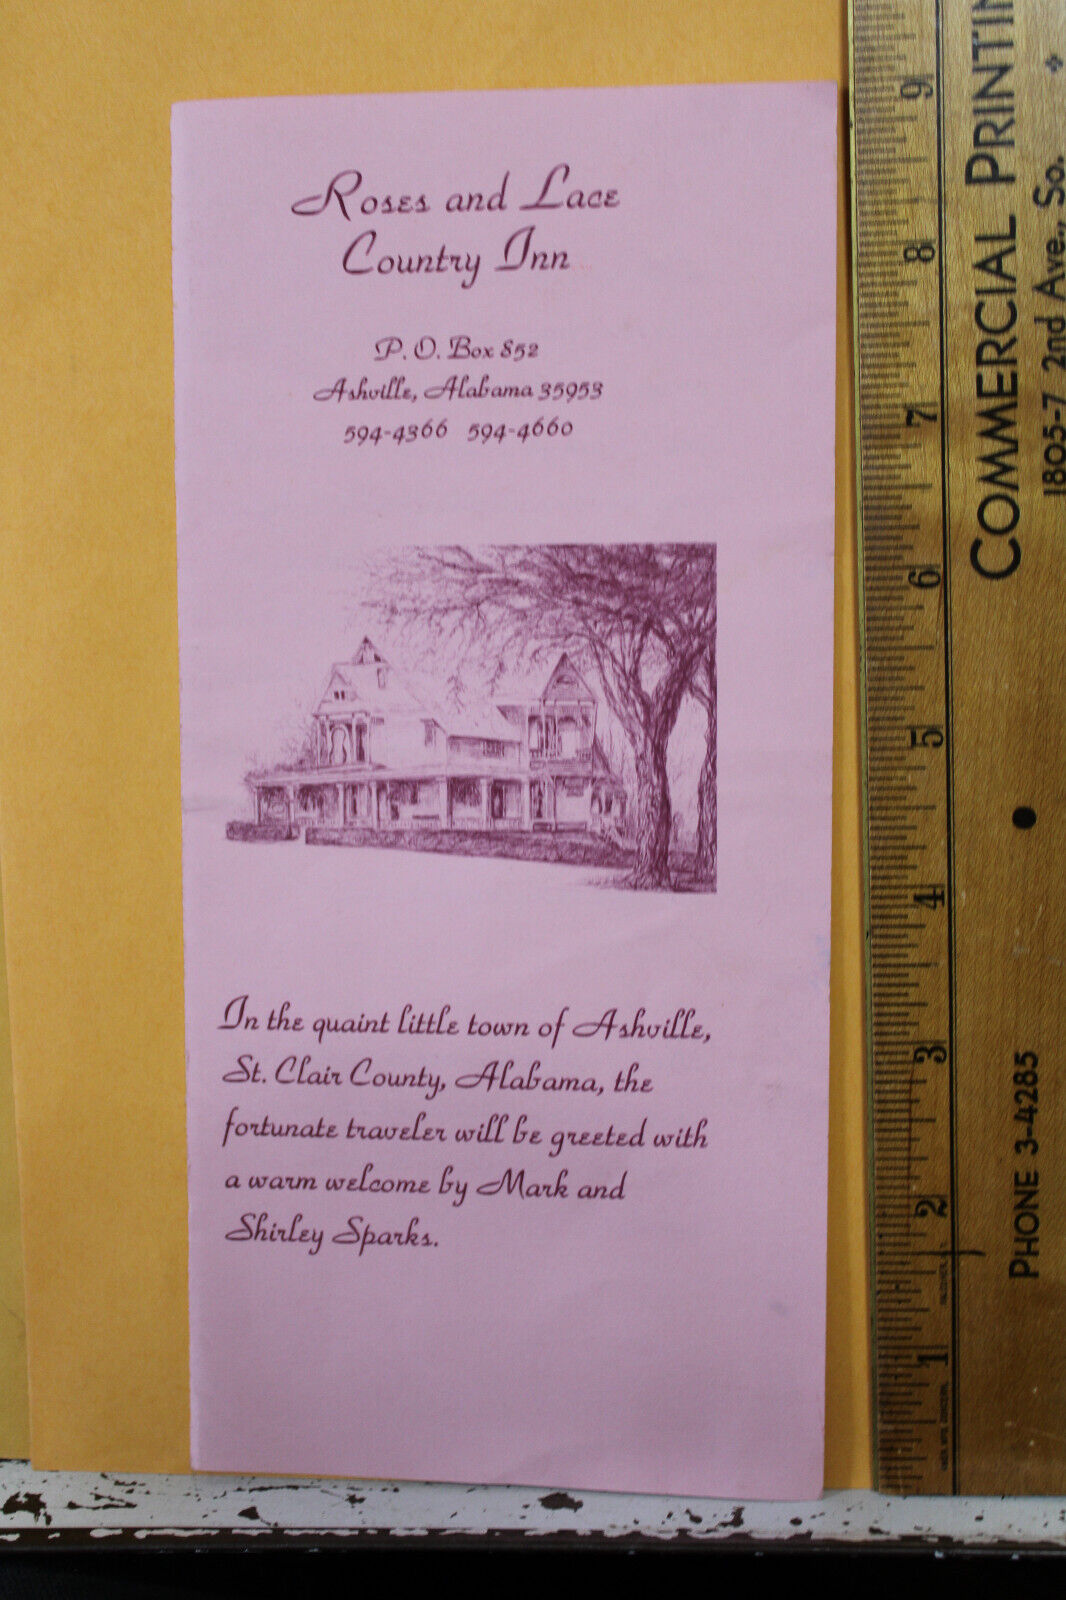 Roses and Lace
Country Inn
P. O. Box 852
Ashville, Alabama 35953
594-4366 594-4660
In the quaint little town of Ashville,
St. Clair County, Alabama, the
fortunate traveler will be greeted with
a warm welcome by Mark and
Shirley Sparks.
COMMERCIAL PRINTIN
1805-7 2nd Ave., So.
PHONE 3-4285
9
8
7
6
5
4
3
2
1